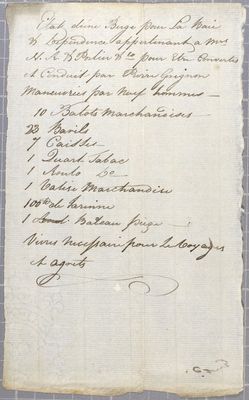 Etat d'une Barge pour La Baie
& Dependence appartenant a Mrs
& Cie pour Etre
et Conduit par Pierre Grignon
Maneuvrées par Neuf hommes —
10 Balots Marchandises
23 Barils
7 Caisses
1 Quart Tabac
1 Roulo Do
1 Valise Marchandise
100lb de farinne
1 Bateau
Vivres Necessair pour Le Voyage
et agrets